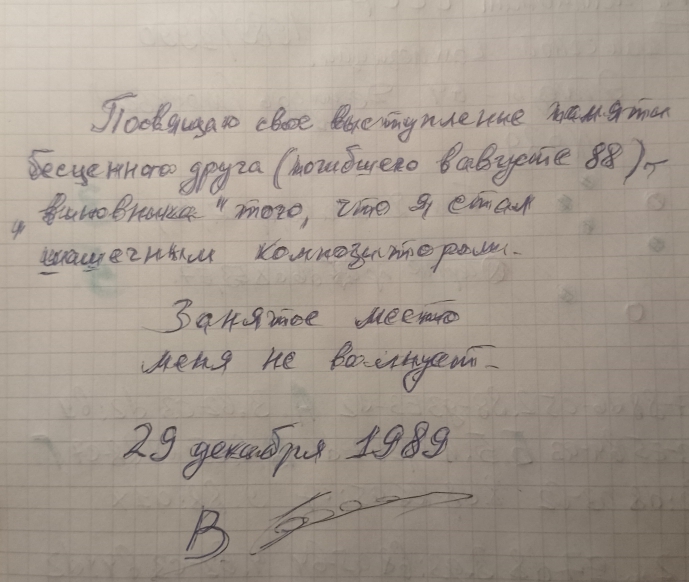 Посвящаю свое выступление памяти
бесценного друга (погибшего в августе 88) –
„виновника" того, что я стал
шашечным композитором.
Занятое место
меня не волнует.
29 декабря 1989
В.